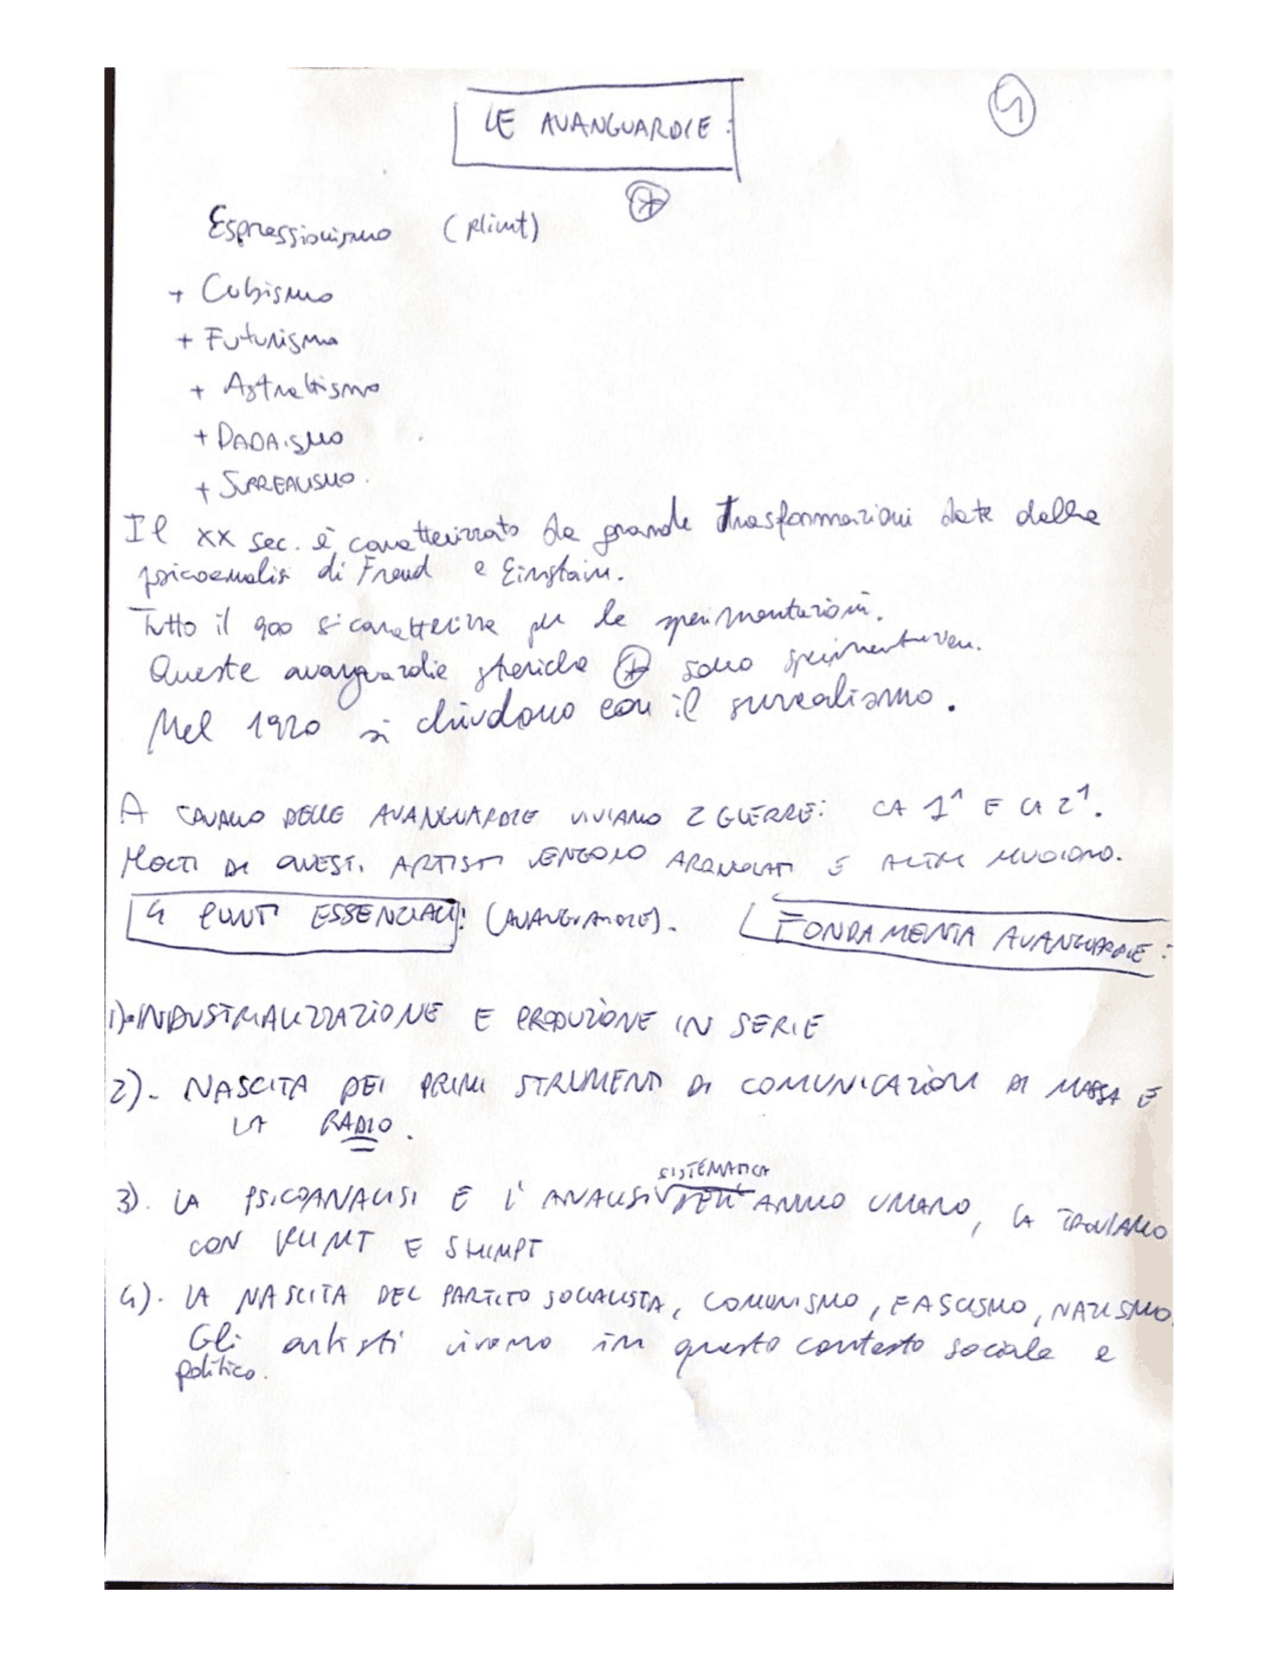 LE AVANGUARDIE:
Espressionismo (Klimt)
+ Cubismo
+ Futurismo
+ Astrattismo
+ DADAISMO
+ SURREALISMO.
Il XX sec. è caratterizzato da grande trasformazioni date dalla
psicoanalisi di Freud e Einstain.
Tutto il 900 si caratterizza per le sperimentazioni.
Queste avanguardie storiche sono
Nel 1920 si chiudono con il surrealismo.
A CAVALLO DELLE AVANGUARDIE VIVIAMO 2 GUERRE: LA 1ª E LA 2ª.
MOLTI DI QUESTI ARTISTI VENGONO ARRUOLATI E ALTRI MUOIONO.
4 PUNTI ESSENZIALI: (AVANGUARDIE). FONDAMENTA AVANGUARDIE:
1). INDUSTRIALIZZAZIONE E PRODUZIONE IN SERIE
2). NASCITA DEI PRIMI STRUMENTI DI COMUNICAZIONI DI MASSA E
LA RADIO.
SISTEMATICA
3). LA PSICOANALISI E L'ANALISI DELL'ANIMO UMANO, LA TROVIAMO
CON KLIMT E
4). LA NASCITA DEL PARTITO SOCIALISTA, COMUNISMO, FASCISMO, NAZISMO.
Gli artisti vivono in questo contesto sociale e
politico.